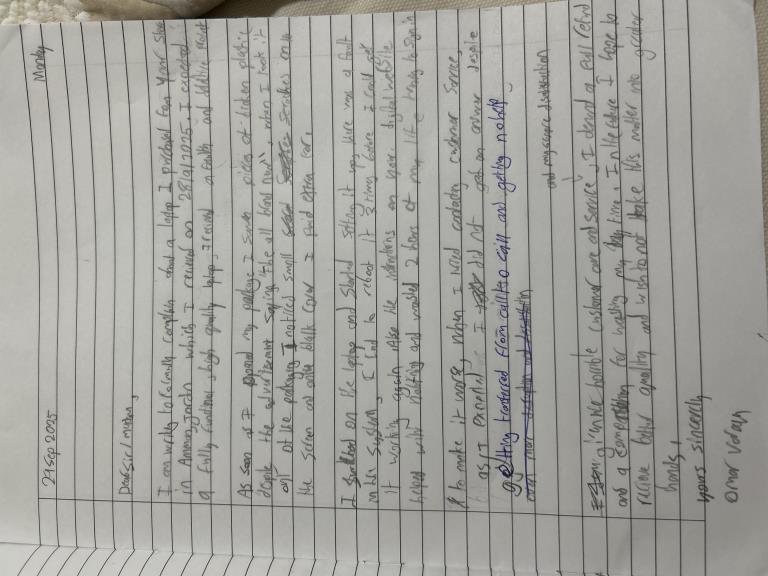 29 Sep 2025 Monday
Dear Sir / madam,
I am writing to formally complain about a laptop I purchased from your store
in Amman, Jordan which I received on 28/9/2025, I expected
a fully functional, high quality laptop, I received a faulty and
As soon as I opened my package I seen pieces of broken plastic
despite the advertisment saying the all brand new, when I took it
out of the packaging I noticed small scratches on
the screen and black cover I paid extra for.
I on the laptop and started setting it up, there was a fault
in the system, I had to reboot it 3 times before I could get
it working again. Also the instructions on your digital website
helped with nothing and wasted 2 hours of my life trying to sign in
to make it work, when I tried contacting customer service,
as I expected I did not get an answer despite
getting transferred from call to call and getting no help
and my severe dissatisfaction
horrible customer care and service, I demand a full refund
and a compensation for wasting my time. In the future I hope to
recieve better quality and wish to not take this matter into greater
hands,
yours sincerely,
Omar